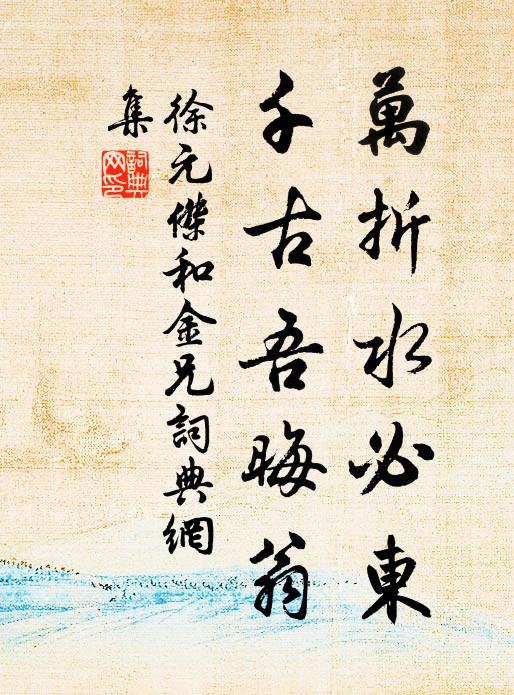 萬折水必東
千古吾晦翁
徐元傑和金兄詞典網
集
詞典网印